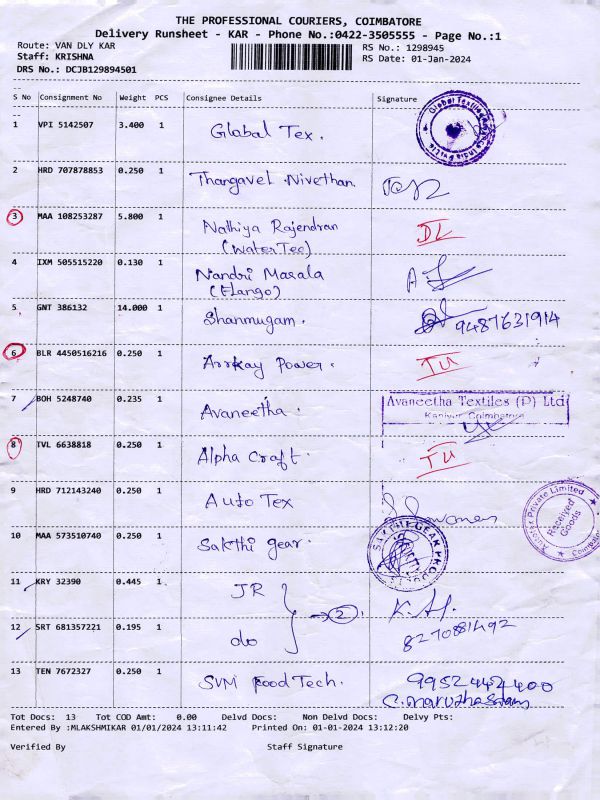 THE PROFESSIONAL COURIERS, COIMBATORE
Delivery Runsheet - KAR - Phone No.:0422-3505555 - Page No.:1
Route: VAN DLY KAR RS No.: 1298945
Staff: KRISHNA RS Date: 01-Jan-2024
DRS No.: DCJB129894501
S No Consignment No Weight PCS Consignee Details Signature
1 VPI 5142507 3.400 1 Global Tex.
2 HRD 707878853 0.250 1 Thangavel Nivethan.
3 MAA 108253287 5.800 1 Nathiya Rajendran DL
(Water Tec)
4 IXM 505515220 0.130 1 Nandri Masala
(Elango)
5 GNT 386132 14.000 1 Shanmugam. 9487631914
6 BLR 4450516216 0.250 1 Arrkay Power. TU
7 BOH 5248740 0.235 1 Avaneetha. Avaneetha Textiles (P) Ltd
Kaniyur, Coimbatore
8 TVL 6638818 0.250 1 Alpha Craft. TU
9 HRD 712143240 0.250 1 Auto Tex
Private Limited
Received
Goods
10 MAA 573510740 0.250 1 Sakthi gear. SAKTHI GEAR PRODUCTS
11 KRY 32390 0.445 1 JR 2
12 SRT 681357221 0.195 1 do 8270881492
13 TEN 7672327 0.250 1 SVM Food Tech. 9952442400
Tot Docs: 13 Tot COD Amt: 0.00 Delvd Docs: Non Delvd Docs: Delvy Pts:
Entered By :MLAKSHMIKAR 01/01/2024 13:11:42 Printed On: 01-01-2024 13:12:20
Verified By Staff Signature